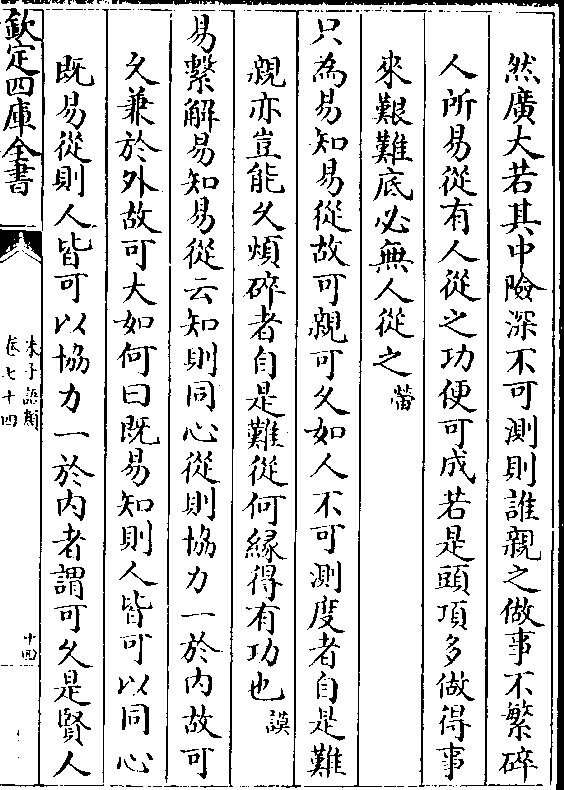 然廣大若其中險深不可測則誰親之做事不繁碎
人所易從有人從之功便可成若是頭項多做得事
來艱難底必無人從之㽦
只為易知易從故可親可久如人不可測度者自是難
親亦豈能久煩碎者自是難從何緣得有功也謨
易繫解易知易從云知則同心從則協力一於內故可
久兼於外故可大如何曰既易知則人皆可以同心
既易從則人皆可以協力一於內者謂可久是賢人
欽定四庫全書
朱子語類
卷七十四
十四